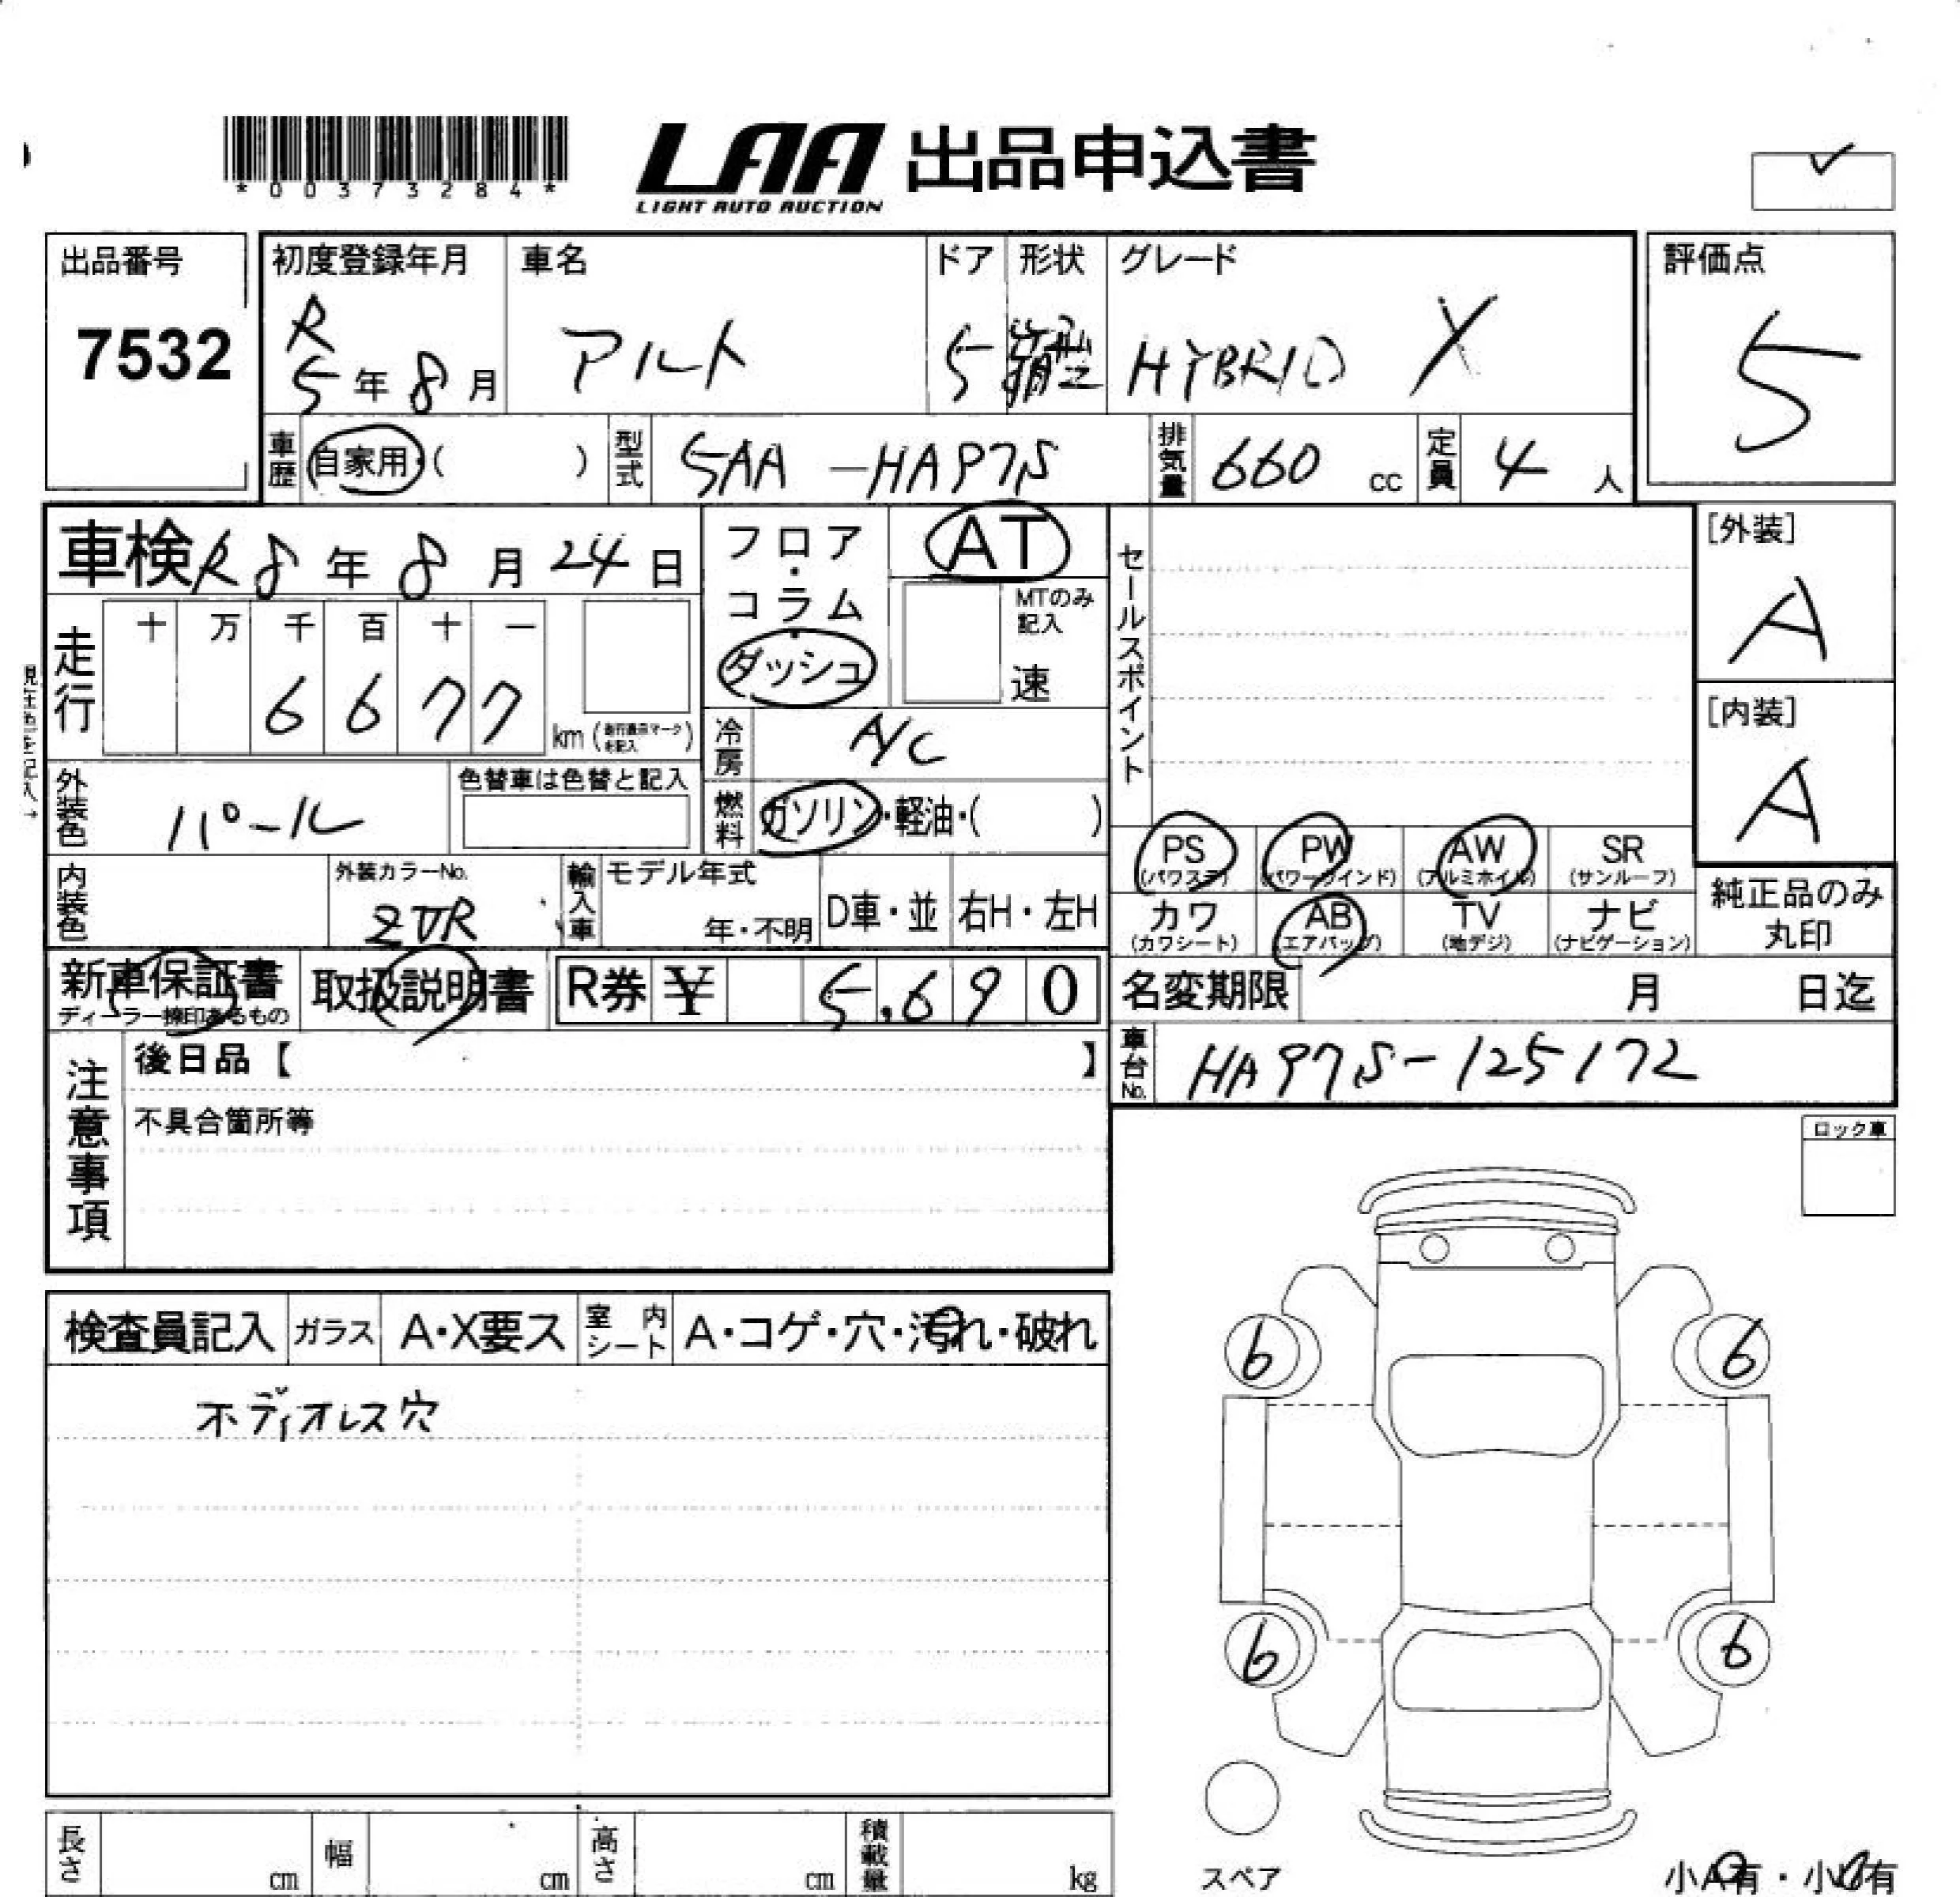 *00373284*
LAA 出品申込書
LIGHT AUTO AUCTION
出品番号
7532
初度登録年月
R
5年8月
車名
アルト
ドア
5
形状
箱型
グレード
HYBRID X
評価点
5
車歴
自家用・( )
型式
5AA-HA97S
排気量
660 cc
定員
4 人
車検 R8年8月24日
フロア・コラム・ダッシュ
AT
MTのみ記入
速
セールスポイント
[外装]
A
[内装]
A
走行
十 万 千 百 十 一
6 6 7 7
km (走行表示マークを記入)
現在色を記入→
冷房
A/C
外装色
パール
色替車は色替と記入
燃料
ガソリン・軽油・( )
PS (パワステ)
PW (パワーウインド)
AW (アルミホイル)
SR (サンルーフ)
カワ (カワシート)
AB (エアバッグ)
TV (地デジ)
ナビ (ナビゲーション)
純正品のみ
丸印
内装色
外装カラーNo.
ZVR
輸入車
モデル年式
年・不明
D車・並
右H・左H
新車保証書
ディーラー捺印あるもの
取扱説明書
R券 ¥ 5,690
名変期限 月 日迄
車台No.
HA97S-125172
注意事項
後日品【 】
不具合箇所等
ロック車
検査員記入
ガラス
A・X要ス
室内シート
A・コゲ・穴・汚れ・破れ
ホディオレス穴
6
6
6
6
スペア
小A有・小U有
長さ cm
幅 cm
高さ cm
積載量 kg